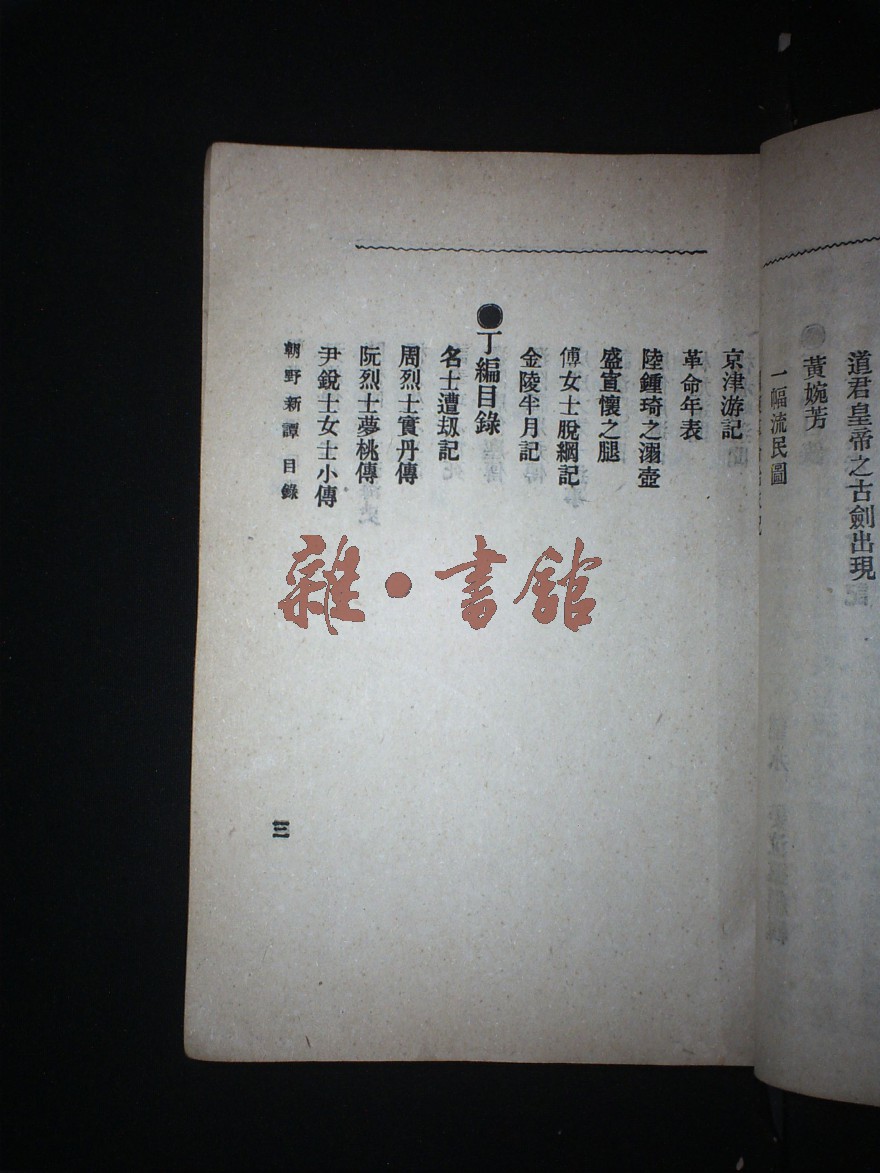 道君皇帝之古劍出現
黃婉芳
一幅流民圖
京津游記
革命年表
陸鍾琦之溺壺
盛宣懷之腿
傅女士脫網記
金陵半月記
●丁編目錄
名士遭刼記
周烈士實丹傳
阮烈士夢桃傳
尹銳士女士小傳
朝野新譚 目錄
三
雜·書館